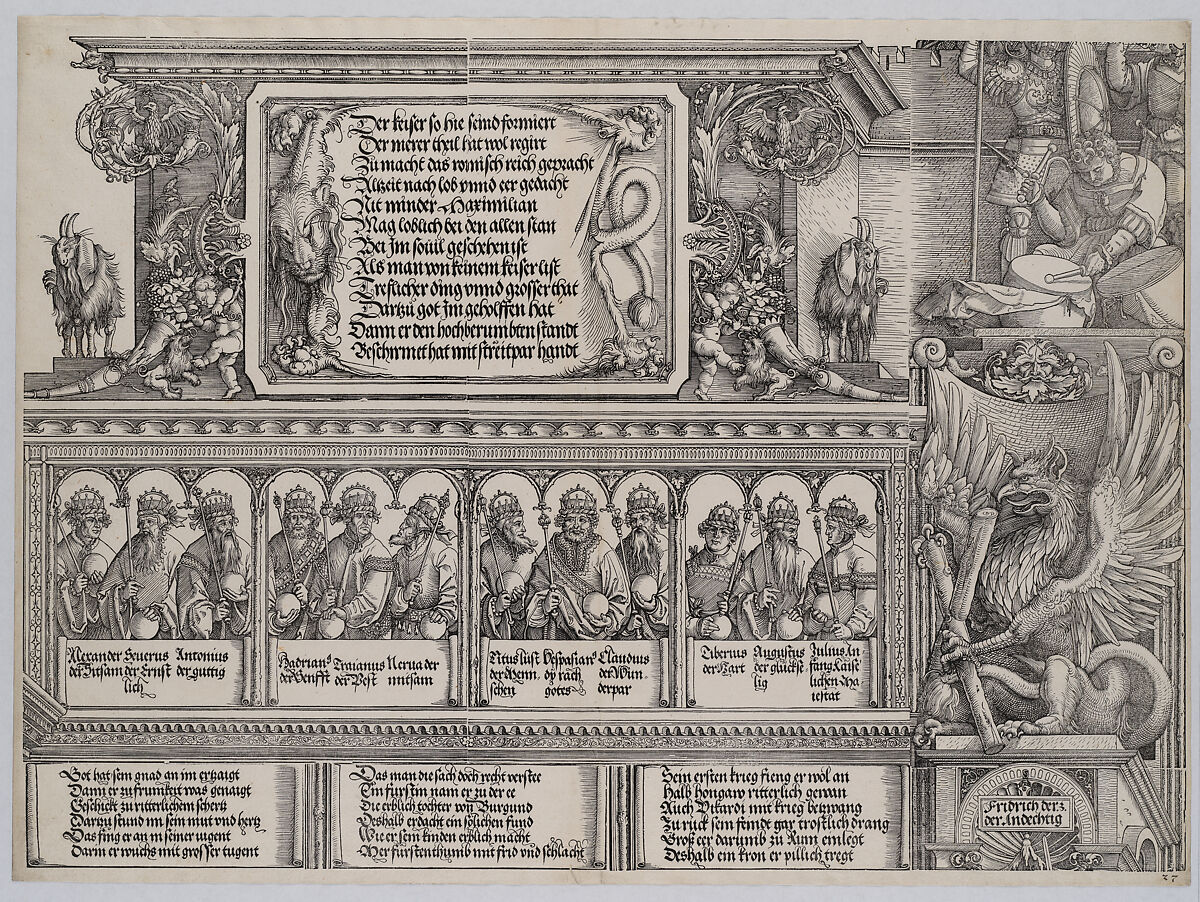 Der keiser so hie seind formiert
Der merer theil hat wol regirt
Zu macht das romisch reich gepracht
Alzeit nach lob vnnd eer gedacht
Nit minder Maximilian
Mag loblich bei den allen stan
Bei Im souil geschehen ist
Als man von keinem keiser list
Treflicher ding vnnd grosser that
Dartzu got Im geholffen hat
Dann er den hochberumbten standt
Beschirmet hat mit streitpar handt
Alexander Seuerus Antonius
der Ernst der guttig
lich
Hadrians Traianus Nerua der
der Senfft der Pest mitsam
Titus lust Vespasians Claudius
der Menn op rach der Wun
schen gotes derpar
Tiberius Augustus Julius An
der Hart der glückse fang kaise
lig lichen Ma
iestat
Got hat sein gnad an im ertzaigt
Dann er zu frumkeit was genaigt
Geschickt zu ritterlichem schertz
Dartzu stund im sein mut vnd hertz
Das fing er an in seiner iugent
Darin er wuchs mit grosser tugent
Das man die sach doch recht verstee
Ein furstin nam er zu der ee
Die erblich tochter von Burgund
Deshalb erdacht ein solichen fund
Wie er sein kinden erblich macht
Mer furstenthumb mit frid vnd schlacht
Sein ersten krieg fieng er wol an
Halb hongaw ritterlich gewan
Auch Pikardi mit krieg betzwang
Zuruck sein feindt gar trostlich drang
Groß eer darumb zu Rum einlegt
Deshalb ein kron er pillich tregt
Fridrich der .3.
der Andechtig
37